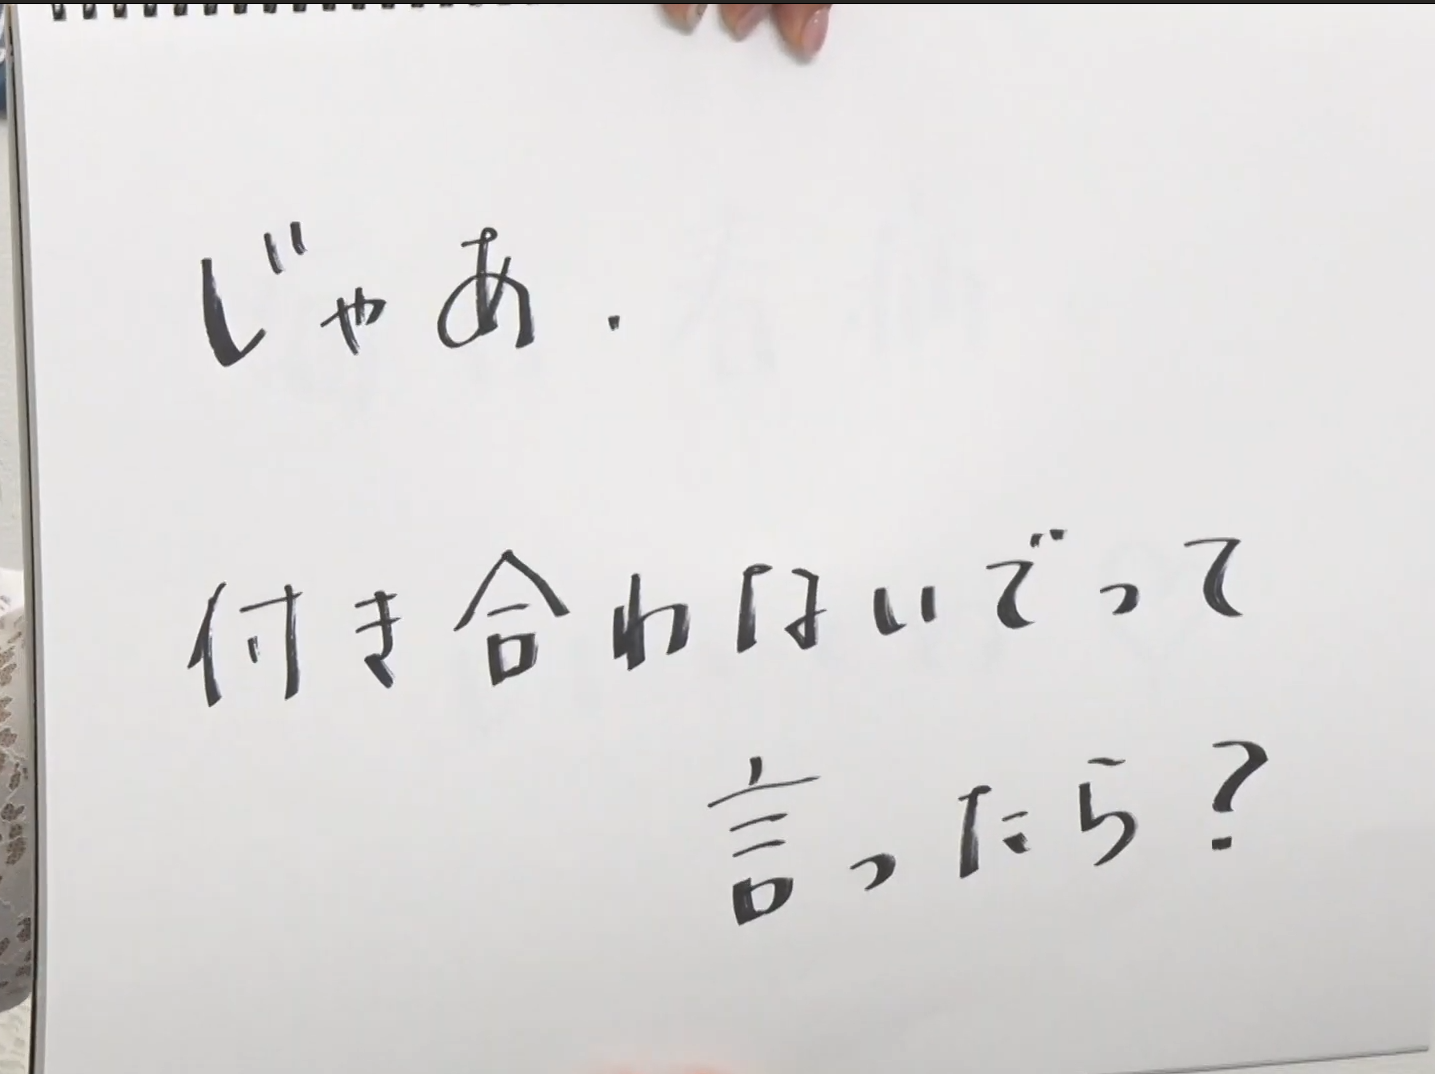 じゃあ.
付き合わないでって
言ったら?